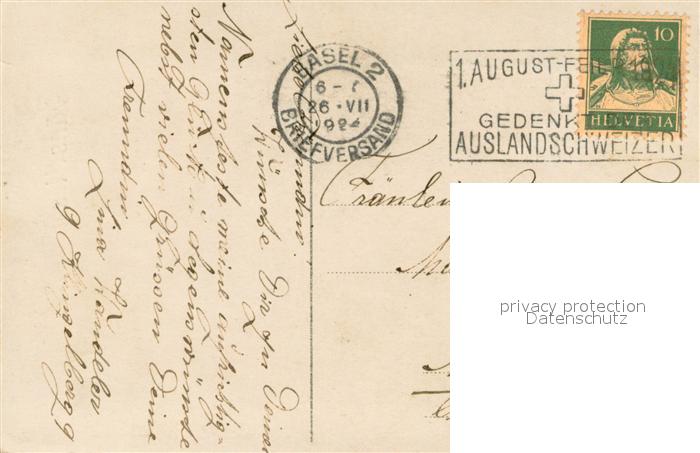 Liebe Freundin!
Wünsche Dir zu Deinem
Namensfeste meine aufrichtig-
sten Glück u. Segenswünsche
nebst vielen Grüssen Deine
Freundin
Lina
9 Klingelberg 9
BASEL 2
6-7
26·VII
1924
BRIEFVERSAND
1. AUGUST-FEIER
GEDENKT
AUSLANDSCHWEIZER
10
HELVETIA
Fräulein
privacy protection
Datenschutz